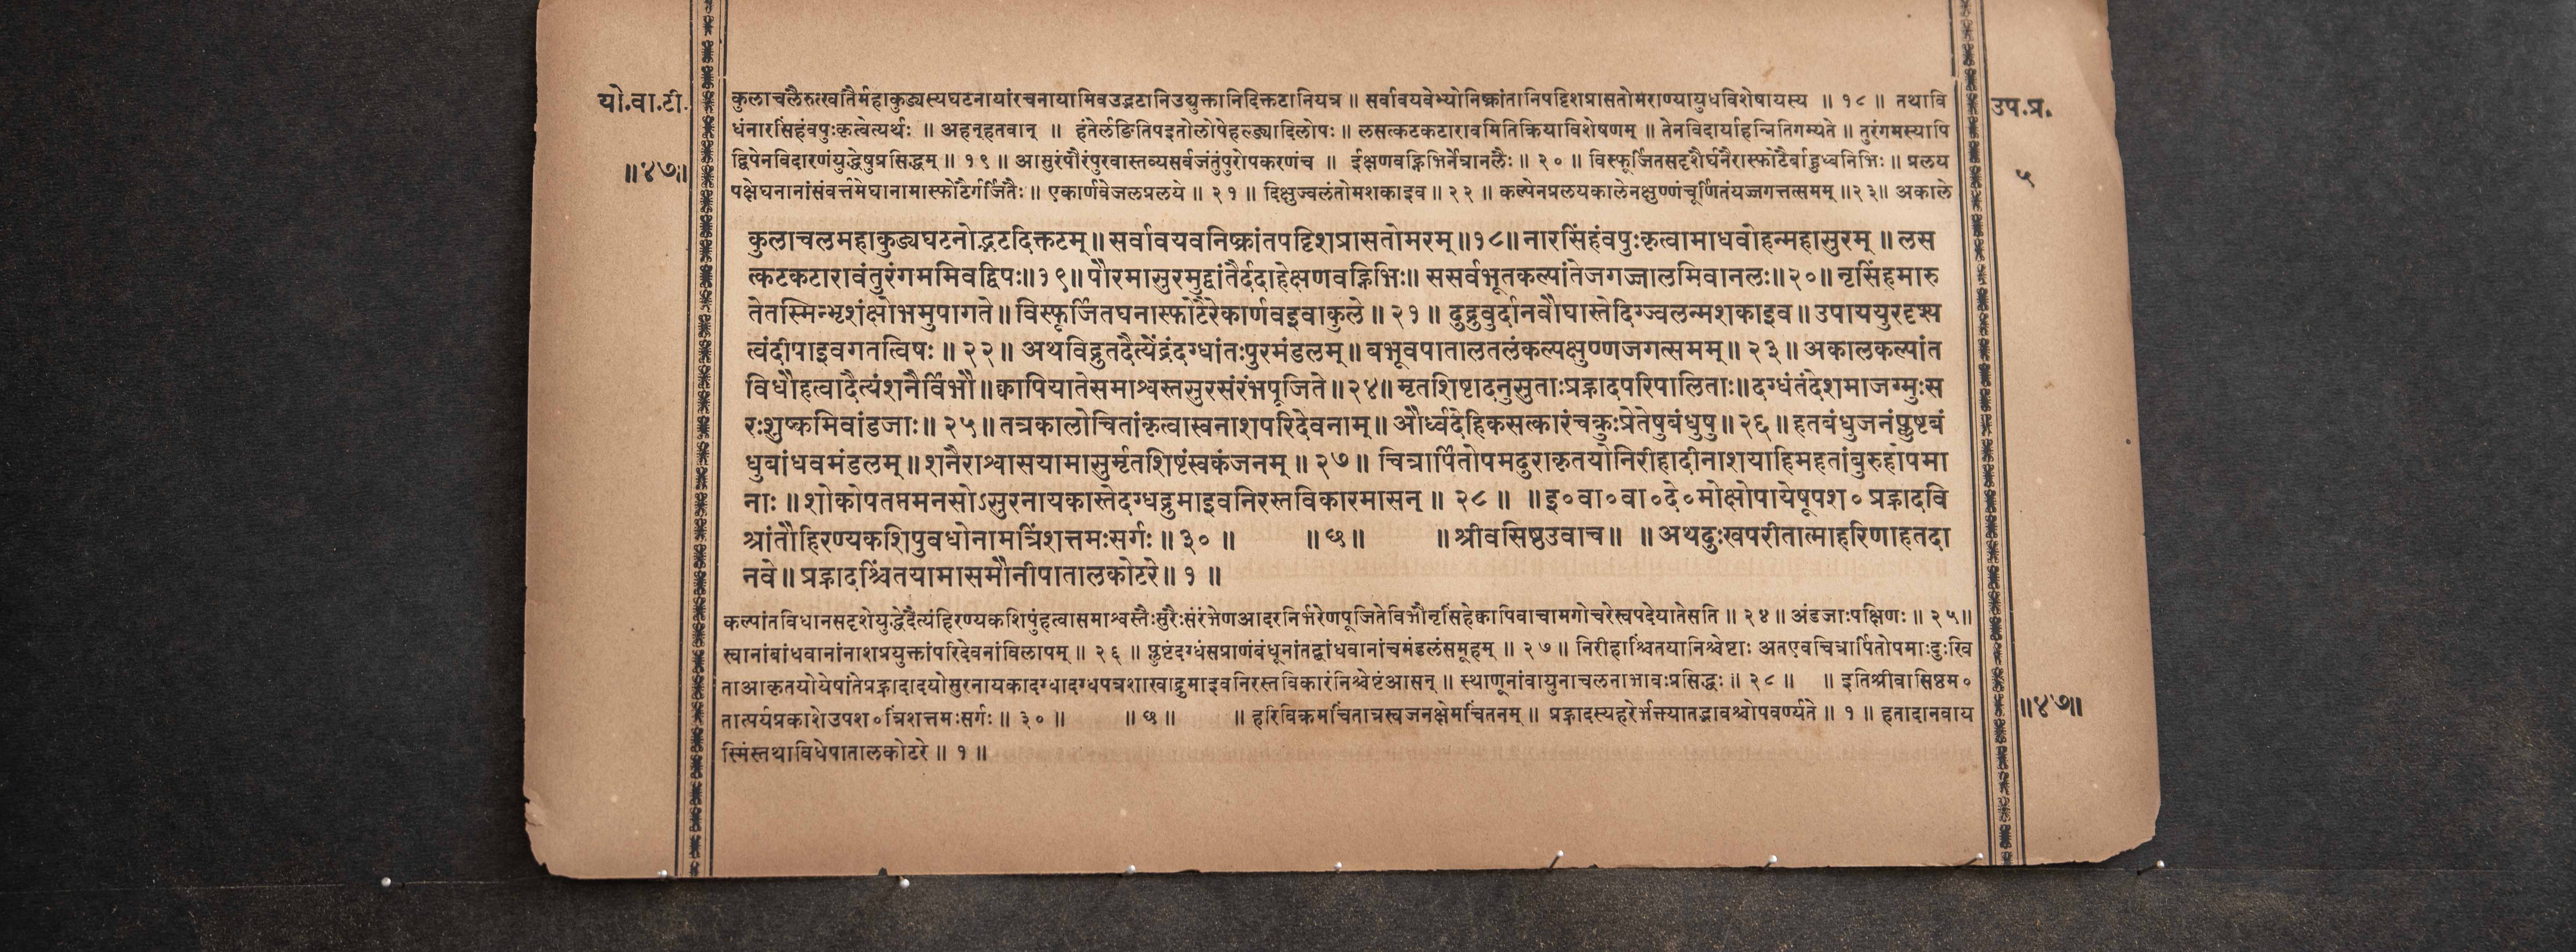 यो.वा.टी.
॥४७॥
उप.प्र.
५
कुलाचलैरुत्खातैर्महाकुड्यस्यघटनायांरचनायामिवउद्भटानिउद्युक्तानिदिक्तटानियत्र ॥ सर्वावयवेभ्योनिष्क्रांतानिपट्टिशप्रासतोमराण्यायुधविशेषायस्य ॥ १८ ॥ तथावि
धंनारसिंहंवपुःकृत्वेत्यर्थः ॥ अहन्हतवान् ॥ हंतेर्लङितिपइतोलोपेहल्ङ्यादिलोपः ॥ लसत्कटकटारावमितिक्रियाविशेषणम् ॥ तेनविदार्याहन्नितिगम्यते ॥ तुरंगमस्यापि
द्विपेनविदारणंयुद्धेषुप्रसिद्धम् ॥ १९ ॥ आसुरंपौरंपुरवास्तव्यसर्वजंतुंपुरोपकरणंच ॥ ईक्षणवह्निभिर्नेत्रानलैः ॥ २० ॥ विस्फूर्जितसदृशैर्घनैरास्फोटैर्बाहुध्वनिभिः ॥ प्रलय
पक्षेघनानांसंवर्त्तमेघानामास्फोटैर्गर्जितैः ॥ एकार्णवेजलप्रलये ॥ २१ ॥ दिक्षुज्वलंतोमशकाइव ॥ २२ ॥ कल्पेनप्रलयकालेनक्षुण्णंचूर्णितंयज्जगत्तत्समम् ॥२३॥ अकाले
कुलाचलमहाकुड्यघटनोद्भटदिक्तटम् ॥ सर्वावयवनिष्क्रांतपट्टिशप्रासतोमरम् ॥१८॥ नारसिंहंवपुःकृत्वामाधवोहन्महासुरम् ॥ लस
त्कटकटारावंतुरंगममिवद्विपः॥१९॥ पौरमासुरमुद्वांतैर्ददाहेक्षणवह्निभिः॥ ससर्वभूतकल्पांतेजगज्जालमिवानलः॥२०॥ नृसिंहमारु
तेतस्मिन्भृशंक्षोभमुपागते ॥ विस्फूर्जितघनास्फोटैरेकार्णवइवाकुले ॥ २१ ॥ दुद्रुवुर्दानवौघास्तेदिग्ज्वलन्मशकाइव ॥ उपाययुरदृश्य
त्वंदीपाइवगतत्विषः ॥ २२ ॥ अथविद्रुतदैत्येंद्रंदग्धांतःपुरमंडलम् ॥ बभूवपातालतलंकल्पक्षुण्णजगत्समम् ॥ २३ ॥ अकालकल्पांत
विधौहत्वादैत्यंशनैर्विभौ ॥ क्वापियातेसमाश्वस्तसुरसंरंभपूजिते ॥ २४॥ मृतशिष्टादनुसुताःप्रह्लादपरिपालिताः॥ दग्धंतंदेशमाजग्मुःस
रःशुष्कमिवांडजाः ॥ २५ ॥ तत्रकालोचितांकृत्वास्वनाशपरिदेवनाम् ॥ और्ध्वदेहिकसत्कारंचक्रुःप्रेतेषुबंधुषु ॥ २६ ॥ हतबंधुजनंप्लुष्टबं
धुबांधवमंडलम् ॥ शनैराश्वासयामासुर्मृतशिष्टंस्वकंजनम् ॥ २७ ॥ चित्रार्पितोपमदुराकृतयोनिरीहादीनाशयाहिमहतांबुरुहोपमा
नाः ॥ शोकोपतप्तमनसोऽसुरनायकास्तेदग्धद्रुमाइवनिरस्तविकारमासन् ॥ २८ ॥ ॥ इ॰वा॰वा॰दे॰मोक्षोपायेषूपश॰ प्रह्लादवि
श्रांतौहिरण्यकशिपुवधोनामत्रिंशत्तमःसर्गः ॥ ३० ॥ ॥ ७ ॥ ॥ श्रीवसिष्ठउवाच ॥ ॥ अथदुःखपरीतात्माहरिणाहतदा
नवे ॥ प्रह्लादश्चिंतयामासमौनीपातालकोटरे ॥ १ ॥
कल्पांतविधानसदृशेयुद्धेदैत्यंहिरण्यकशिपुंहत्वासमाश्वस्तैःसुरैःसंरंभेणआदरनिर्भरेणपूजितेविभौनृसिंहेक्वापिवाचामगोचरेस्वपदेयातेसति ॥ २४ ॥ अंडजाःपक्षिणः ॥ २५॥
स्वानांबांधवानांनाशप्रयुक्तांपरिदेवनांविलापम् ॥ २६ ॥ प्लुष्टंदग्धंसप्राणंबंधूनांतद्बांधवानांचमंडलंसमूहम् ॥ २७ ॥ निरीहाश्चिंतयानिश्चेष्टाः अतएवचित्रार्पितोपमाःदुःखि
ताआकृतयोयेषांतेप्रह्लादादयोसुरनायकादग्धादग्धपत्रशाखाद्रुमाइवनिरस्तविकारंनिश्चेष्टंआसन् ॥ स्थाणूनांवायुनाचलनाभावःप्रसिद्धः ॥ २८ ॥ ॥ इतिश्रीवासिष्ठम॰
तात्पर्यप्रकाशेउपश॰त्रिंशत्तमःसर्गः ॥ ३० ॥ ॥ ७ ॥ ॥ हरिविक्रमचिंतात्रस्वजनक्षेमचिंतनम् ॥ प्रह्लादस्यहरेर्भक्त्यातद्भावश्चोपवर्ण्यते ॥ १ ॥ हतादानवाय
स्मिंस्तथाविधेपातालकोटरे ॥ १ ॥
॥४७॥